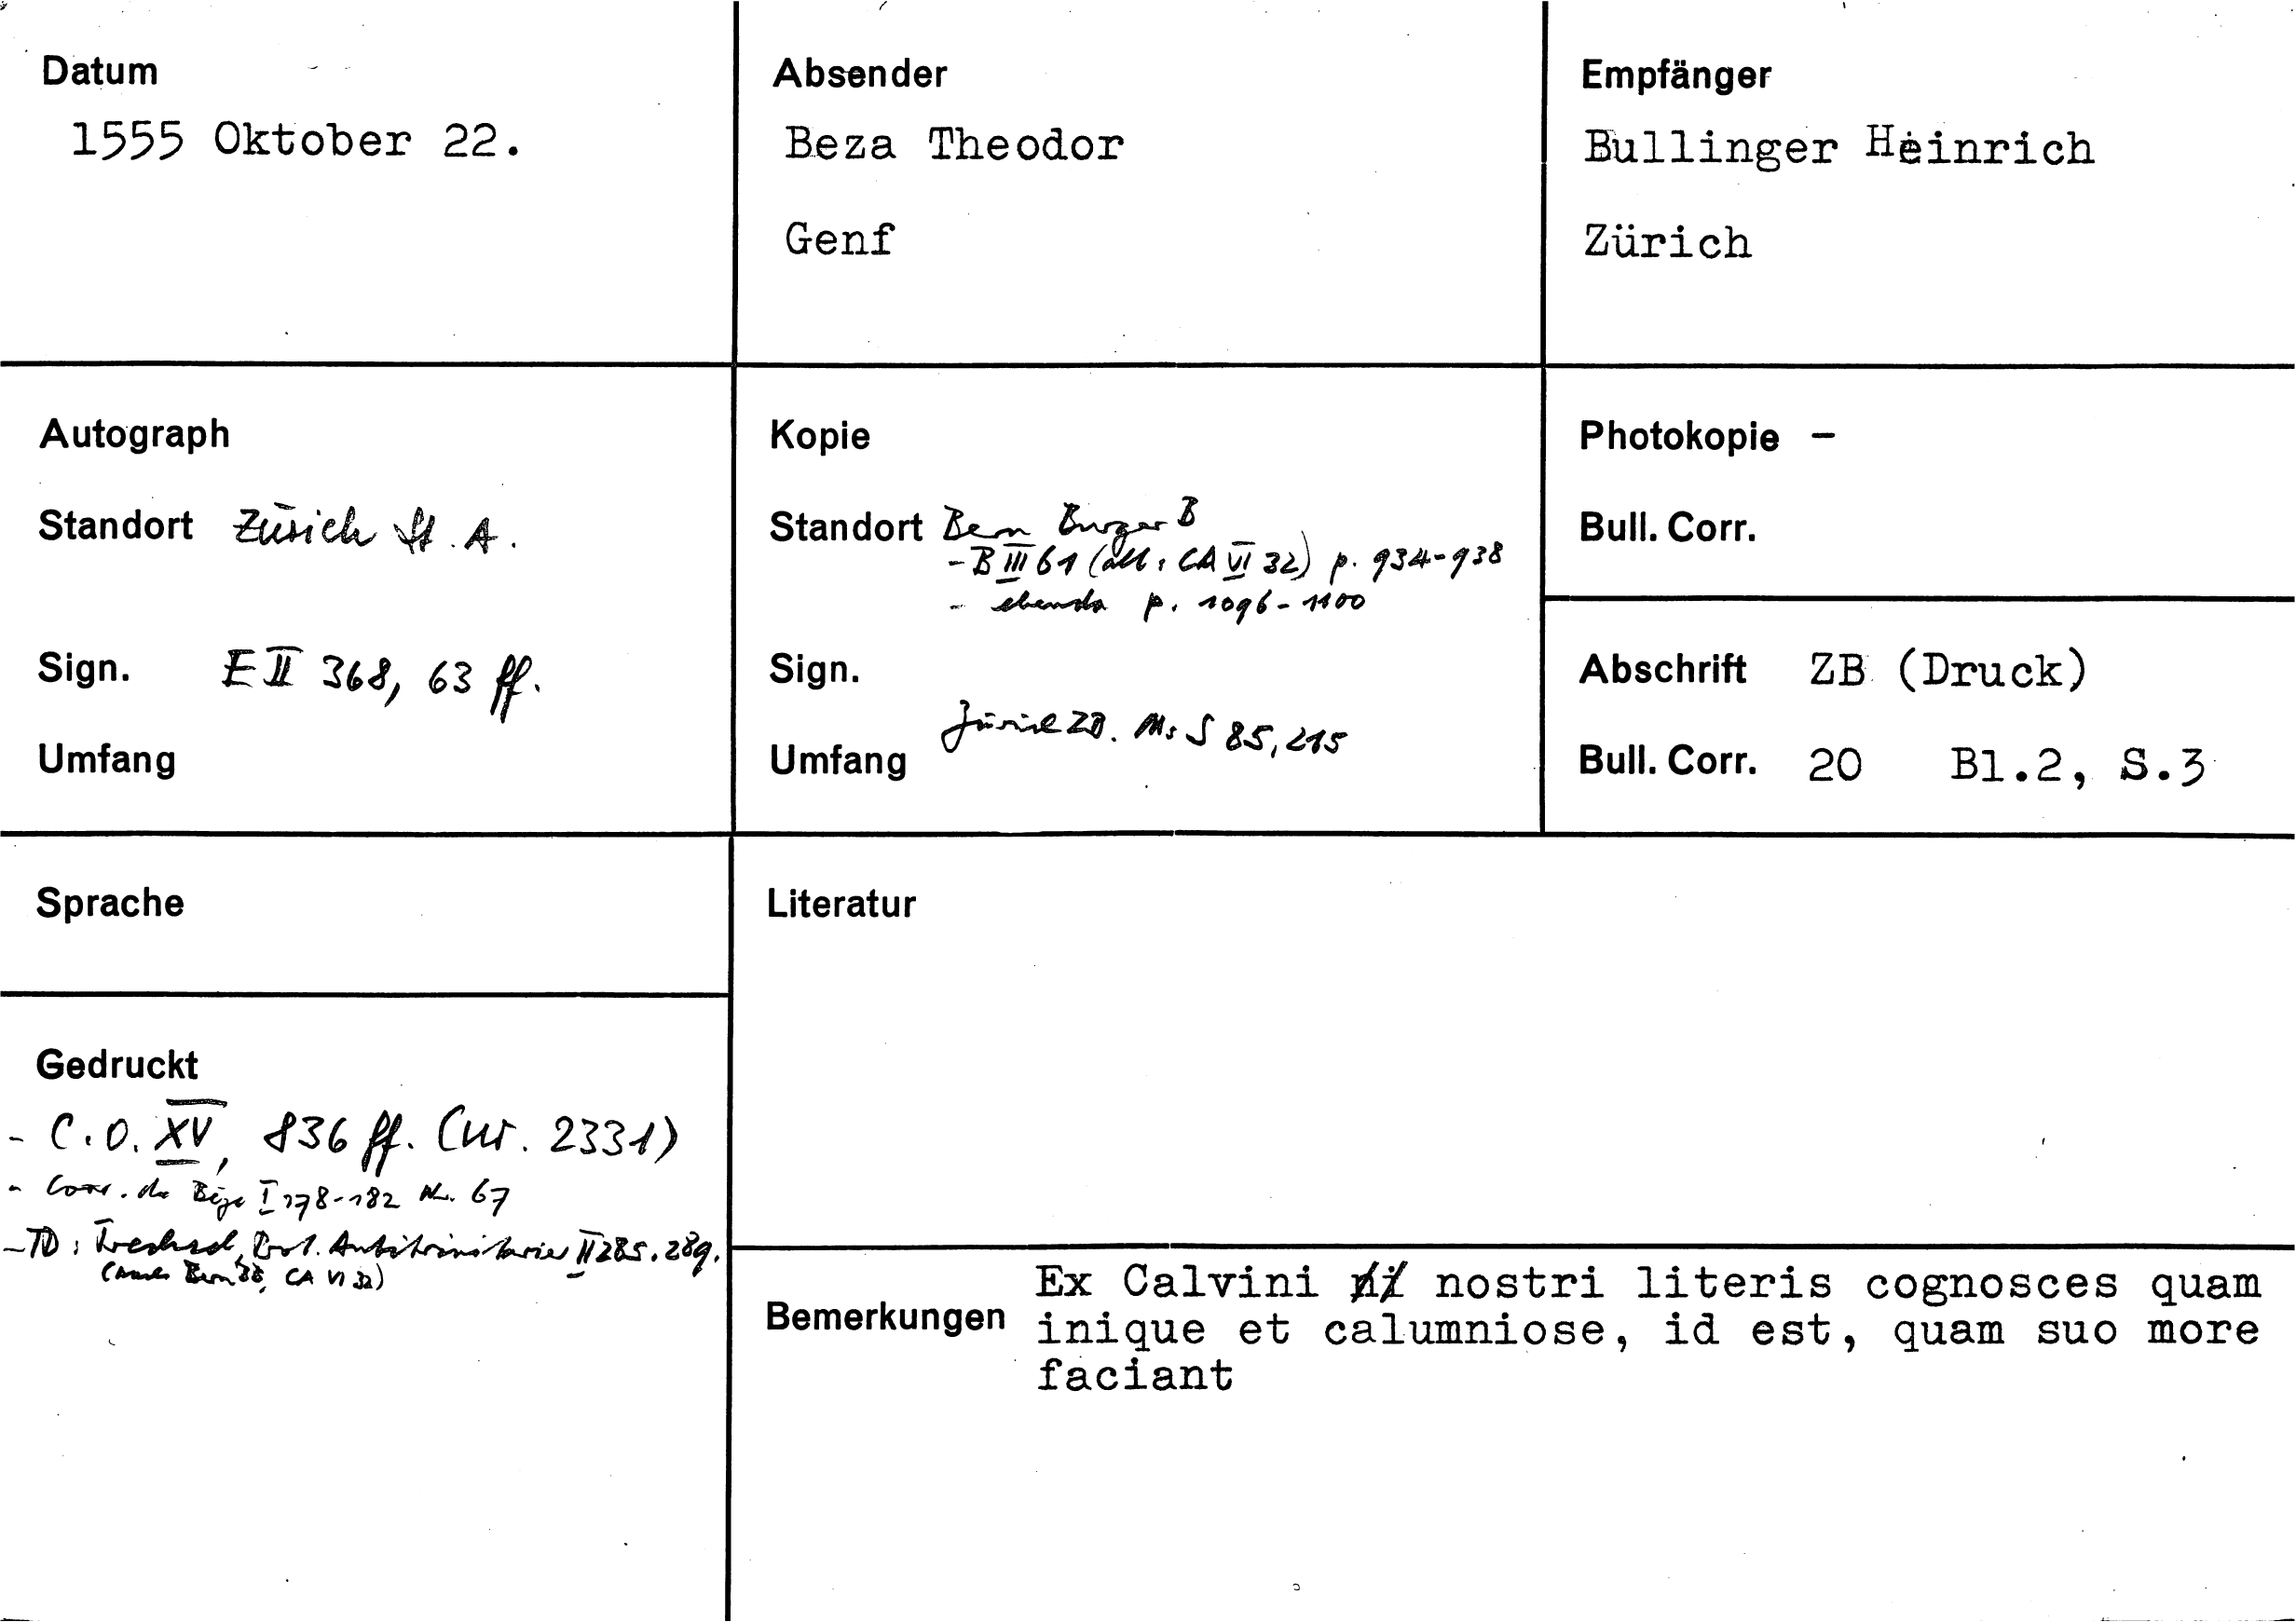 Datum
1555 Oktober 22.
Absender
Beza Theodor
Genf
Empfänger
Bullinger Heinrich
Zürich
Autograph
Standort Zürich St. A.
Sign. E II 368, 63 ff.
Umfang
Kopie
Standort Bern Burger B
- B III 61 (alt: CA VI 32) p. 934-938
- ebenda p. 1096-1100
Sign.
Zürich ZB. Ms S 85, 215
Umfang
Photokopie -
Bull. Corr.
Abschrift ZB (Druck)
Bull. Corr. 20 Bl.2, S.3
Sprache
Gedruckt
- C.O. XV, 836 ff. (nr. 2331)
- Corr. de Bèze I 178-182 Nr. 67
- TD: Trechsel, Prot. Antitrinitarier II 285. 289.
(Bern BB, CA VI 32)
Literatur
Bemerkungen
Ex Calvini nostri literis cognosces quam
inique et calumniose, id est, quam suo more
faciant